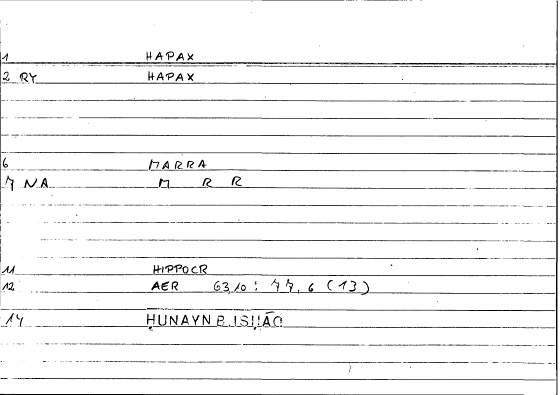 1 HAPAX
2 RY HAPAX
6 MARRA
7 NA M R R
11 HIPPOCR
12 AER 63,10 : 77,6 (13)
14 ḤUNAYN B. ISḤĀQ